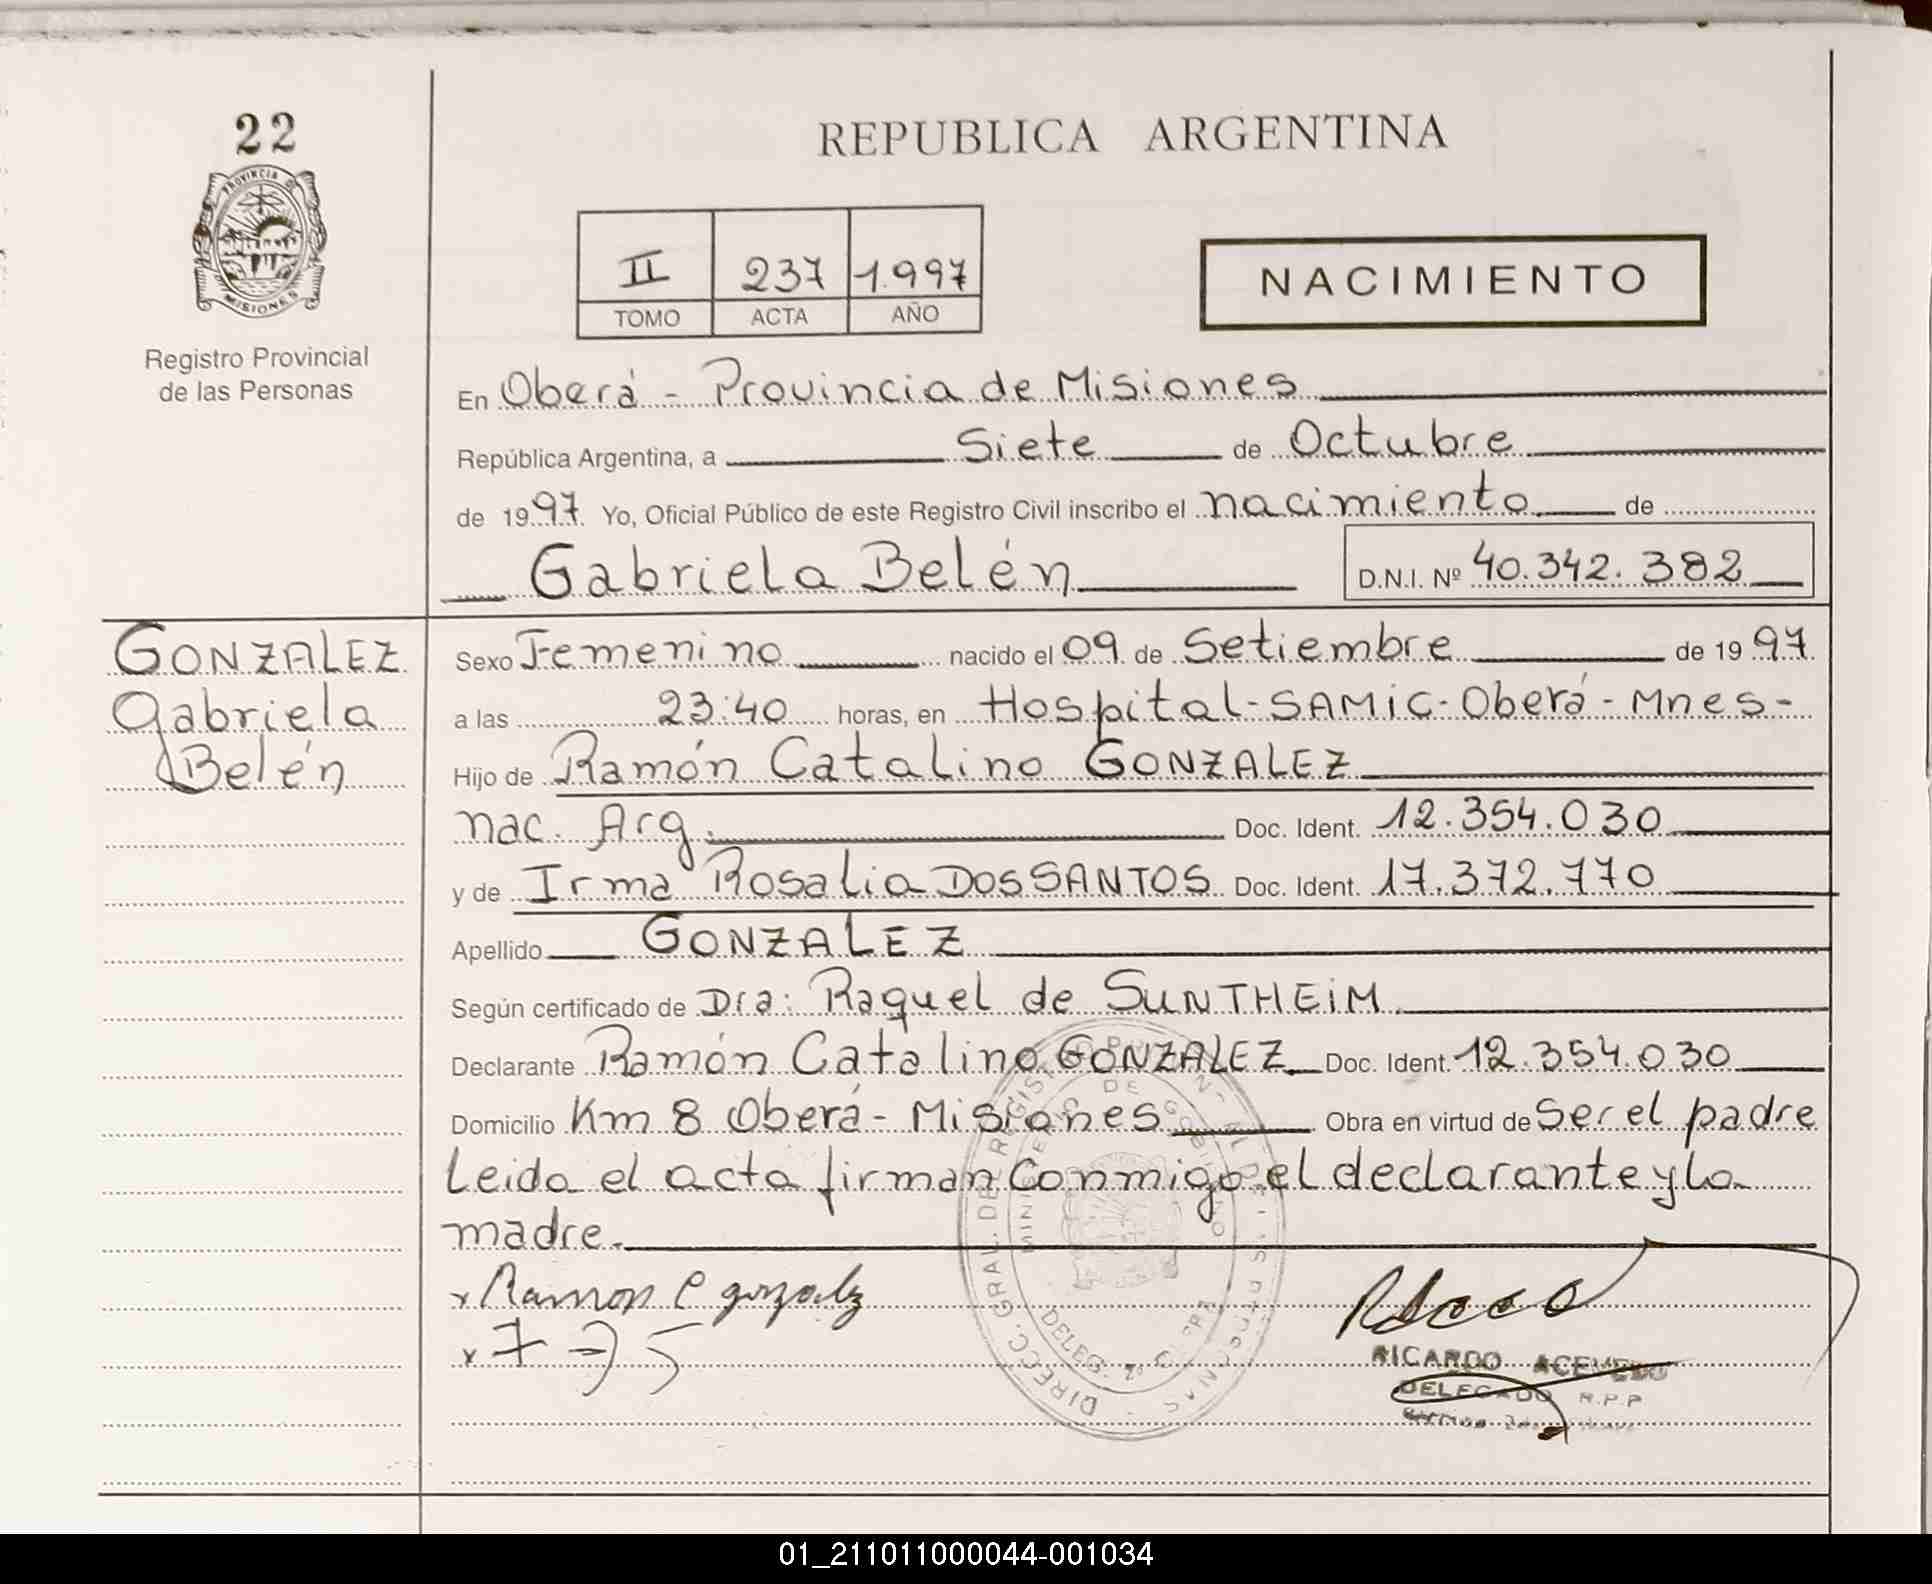 22
PROVINCIA DE
MISIONES
Registro Provincial
de las Personas
REPUBLICA ARGENTINA
II 237 1.997
TOMO ACTA AÑO
NACIMIENTO
En Oberá - Provincia de Misiones
República Argentina, a Siete de Octubre
de 1997 Yo, Oficial Público de este Registro Civil inscribo el nacimiento de
Gabriela Belén D.N.I. Nº 40.342.382
GONZALEZ
Gabriela
Belén
Sexo Femenino nacido el 09 de Setiembre de 1997
a las 23:40 horas, en Hospital-SAMIC-Oberá-Mnes-
Hijo de Ramón Catalino GONZALEZ
nac. Arg. Doc. Ident. 12.354.030
y de Irma Rosalia DOS SANTOS Doc. Ident. 17.372.770
Apellido GONZALEZ
Según certificado de Dra: Raquel de SUNTHEIM
Declarante Ramón Catalino GONZALEZ Doc. Ident. 12.354.030
Domicilio Km 8 Oberá - Misiones Obra en virtud de Ser el padre
Leida el acta firman Conmigo el declarante y la
madre.
x Ramon C gonzalez
x
DIRECC. GRAL. DEL REGISTRO
MINISTERIO DE GOBIERNO
RICARDO ACEVEDO
DELEGADO R.P.P
01_211011000044-001034